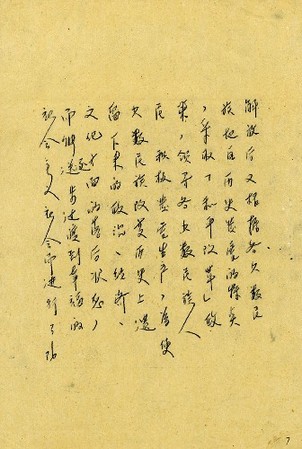 解放后又根据各少数民
族地区历史发展的特点
，采取「和平改革」政
策，领导各少数民族人
民积极发展生产，为使
少数民族改变历史上遗
留下来的政治、经济、
文化方面的落后状态，
而能逐步过渡到幸福的
社会主义社会而进行了
7